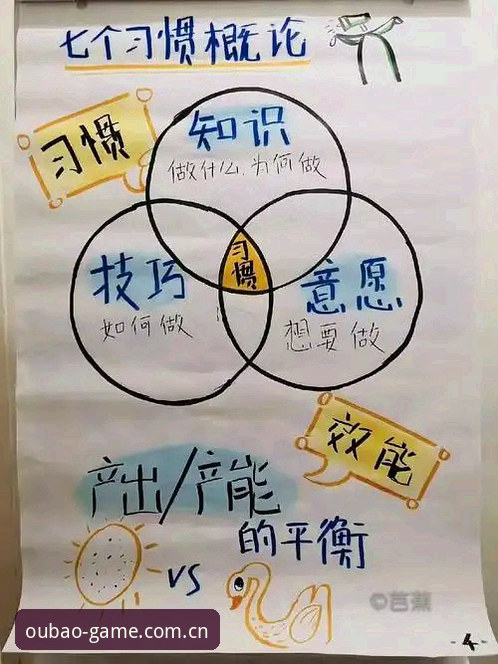 七个习惯概论
习惯
知识
做什么,为何做
习惯
技巧
如何做
意愿
想要做
效能
产出/产能
的平衡
VS
©芭蕉
oubao-game.com.cn
-4-